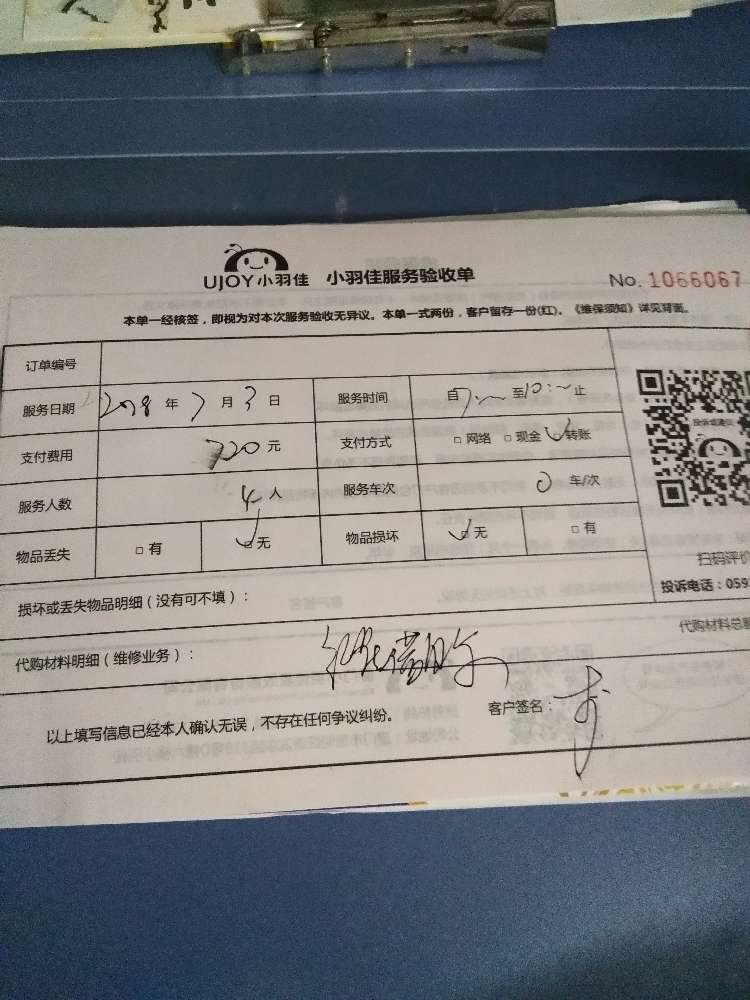 UJOY小羽佳 小羽佳服务验收单 No. 1066067
本单一经核签，即视为对本次服务验收无异议。本单一式两份，客户留存一份(红)。《维保须知》详见背面。
订单编号
服务日期 2018 年 7 月 3 日 服务时间 自 7:~ 至10:~ 止
支付费用 720 元 支付方式 □ 网络 □ 现金 □ 转账
服务人数 4 人 服务车次 0 车/次
物品丢失 □ 有 □ 无 物品损坏 □ 无 □ 有
扫码评价
损坏或丢失物品明细（没有可不填）：
投诉电话：059
代购材料明细（维修业务）：
代购材料总
以上填写信息已经本人确认无误，不存在任何争议纠纷。 客户签名：